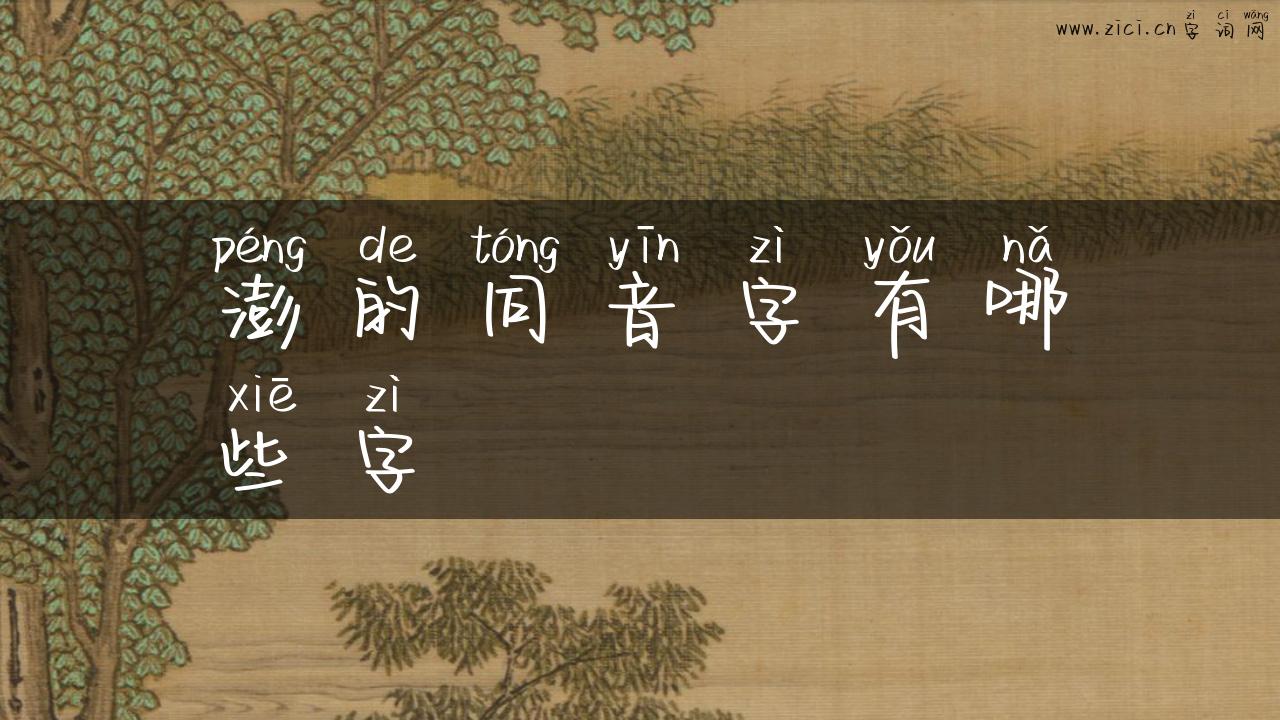 zì cí wǎng
www.zici.cn字词网
péng de tóng yīn zì yǒu nǎ
澎的同音字有哪
xiē zì
些字